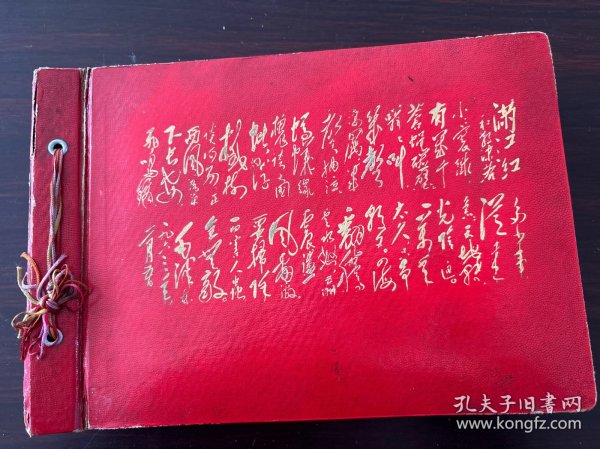 满江红
和郭沫若
小小寰球
有几个
苍蝇碰壁
嗡嗡叫
几声
凄厉几
声抽泣
蚂蚁缘
槐夸大国
蚍蜉撼
树
谈何易正
西风落叶
下长安
飞鸣镝
多少事
从来急
天地转
光阴迫
一万年
太久只争
朝夕四海
翻腾
云水怒五洲
震荡
风雷激
要扫除
一切害人虫
全无敌
毛泽东
一九六三年
孔夫子旧书网
www.kongfz.com